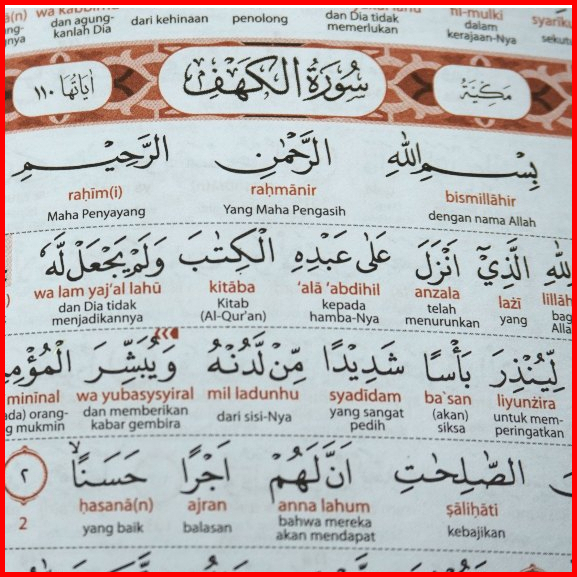 wa kabbirhu
dan agung-
kanlah Dia
dari kehinaan
penolong
dan Dia tidak
memerlukan
fil-mulki
dalam
kerajaan-Nya
اٰيَاتُهَا ١١٠
سُوْرَةُ الْكَهْفِ
مَكِّيَّةٌ
بِسْمِ اللّٰهِ الرَّحْمٰنِ الرَّحِيْمِ
bismillāhir raḥmānir raḥīm(i)
dengan nama Allah Yang Maha Pengasih Maha Penyayang
الَّذِيْٓ اَنْزَلَ عَلٰى عَبْدِهِ الْكِتٰبَ وَلَمْ يَجْعَلْ لَّهٗ
lillāh lażī anzala ‘alā ‘abdihil kitāba wa lam yaj‘al lahū
yang telah menurunkan kepada hamba-Nya Kitab (Al-Qur'an) dan Dia tidak menjadikannya
لِّيُنْذِرَ بَأْسًا شَدِيْدًا مِّنْ لَّدُنْهُ وَيُبَشِّرَ الْمُؤْمِ
liyunżira ba`san syadīdam mil ladunhu wa yubasysyiral minīnal
untuk mem-peringatkan (akan) siksa yang sangat pedih dari sisi-Nya dan memberikan kabar gembira orang- mukmin
الصّٰلِحٰتِ اَنَّ لَهُمْ اَجْرًا حَسَنًاۙ ٢
ṣāliḥāti anna lahum ajran ḥasanā(n) 2
kebajikan bahwa mereka akan mendapat balasan yang baik